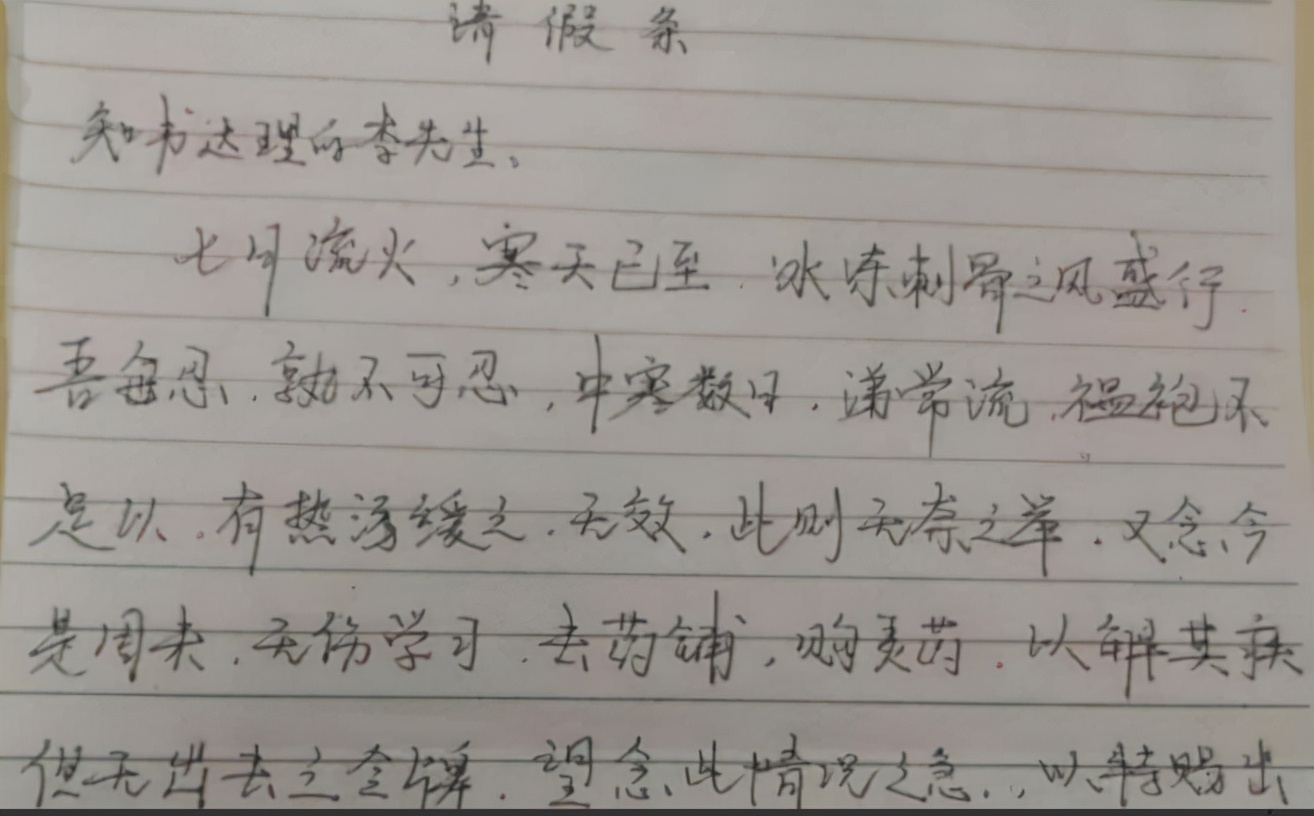 请假条
知书达理的李先生。
七月流火，寒天已至，冰冻刺骨之风盛行.
吾每忍，孰不可忍，中寒数日，涕常流，褞袍不
足以，有热汤缓之，无效，此则无奈之举，又念今
是周末，无伤学习，去药铺，购灵药，以解其疾
但无出去之令牌，望念此情况之急，以特赐出